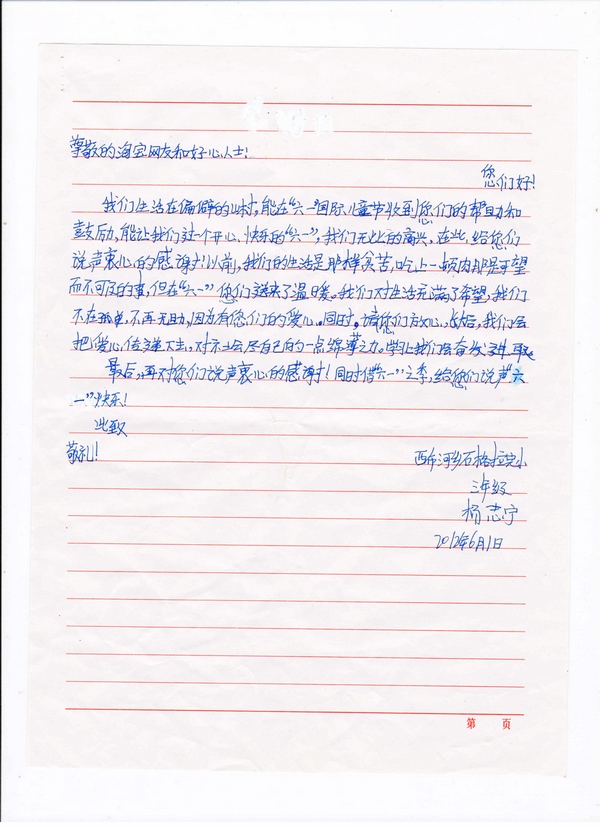 尊敬的淘宝网友和好心人士!
您们好!
我们生活在偏僻的山村,能在“六一”国际儿童节收到您们的帮助和
鼓励,能让我们过一个开心、快乐的“六一”,我们无比的高兴,在此,给您们
说声衷心的感谢!以前,我们的生活是那样贫苦,吃上一顿肉那是可望
而不可及的事,但在“六一”您们送来了温暖。我们对生活充满了希望,我们
不在孤单,不再无助,因为有您们的爱心。同时,请您们放心,长大后,我们会
把爱心传递下去,对社会尽自己的一点绵薄之力。学习上我们会奋发进取。
最后,再对您们说声衷心的感谢!同时借“六一”之季,给您们说声“六
一”快乐!
此致
敬礼!
西乡石格拉完小
三年级
杨志宁
2012年6月1日
第 页